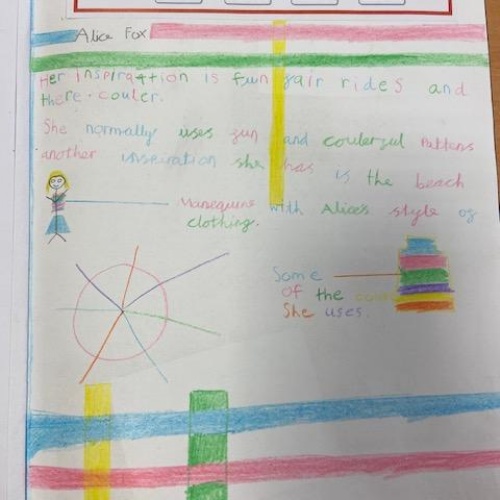 Alice Fox
Her inspirattion is fun gair rides and
there couler.
She normally uses gun and coulergul Pattens
another inspiration she has is the beach
Manequine with Alice's style of
clothing.
Some
of the
She uses.